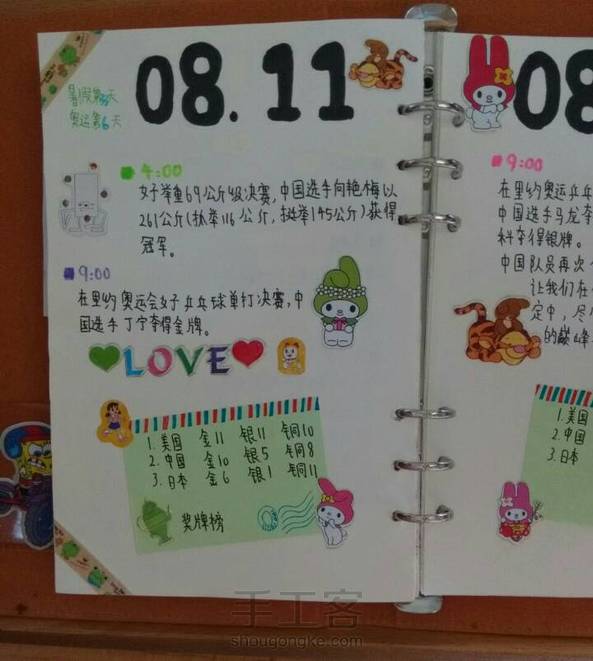 暑假第33天
奥运第6天
08.11
4:00
女子举重69公斤级决赛,中国选手向艳梅以
261公斤(抓举116公斤,挺举145公斤)获得
冠军。
9:00
在里约奥运会女子乒乓球单打决赛,中
国选手丁宁夺得金牌。
LOVE
1.美国 金11 银11 铜10
2.中国 金10 银5 铜8
3.日本 金6 银1 铜11
奖牌榜
08
9:00
在里约奥运乒乓
中国选手马龙夺
科夺得银牌。
中国队员再次
让我们在
定中,尽
的巅峰
1.美国
2.中国
3.日本
手工客
shougongke.com